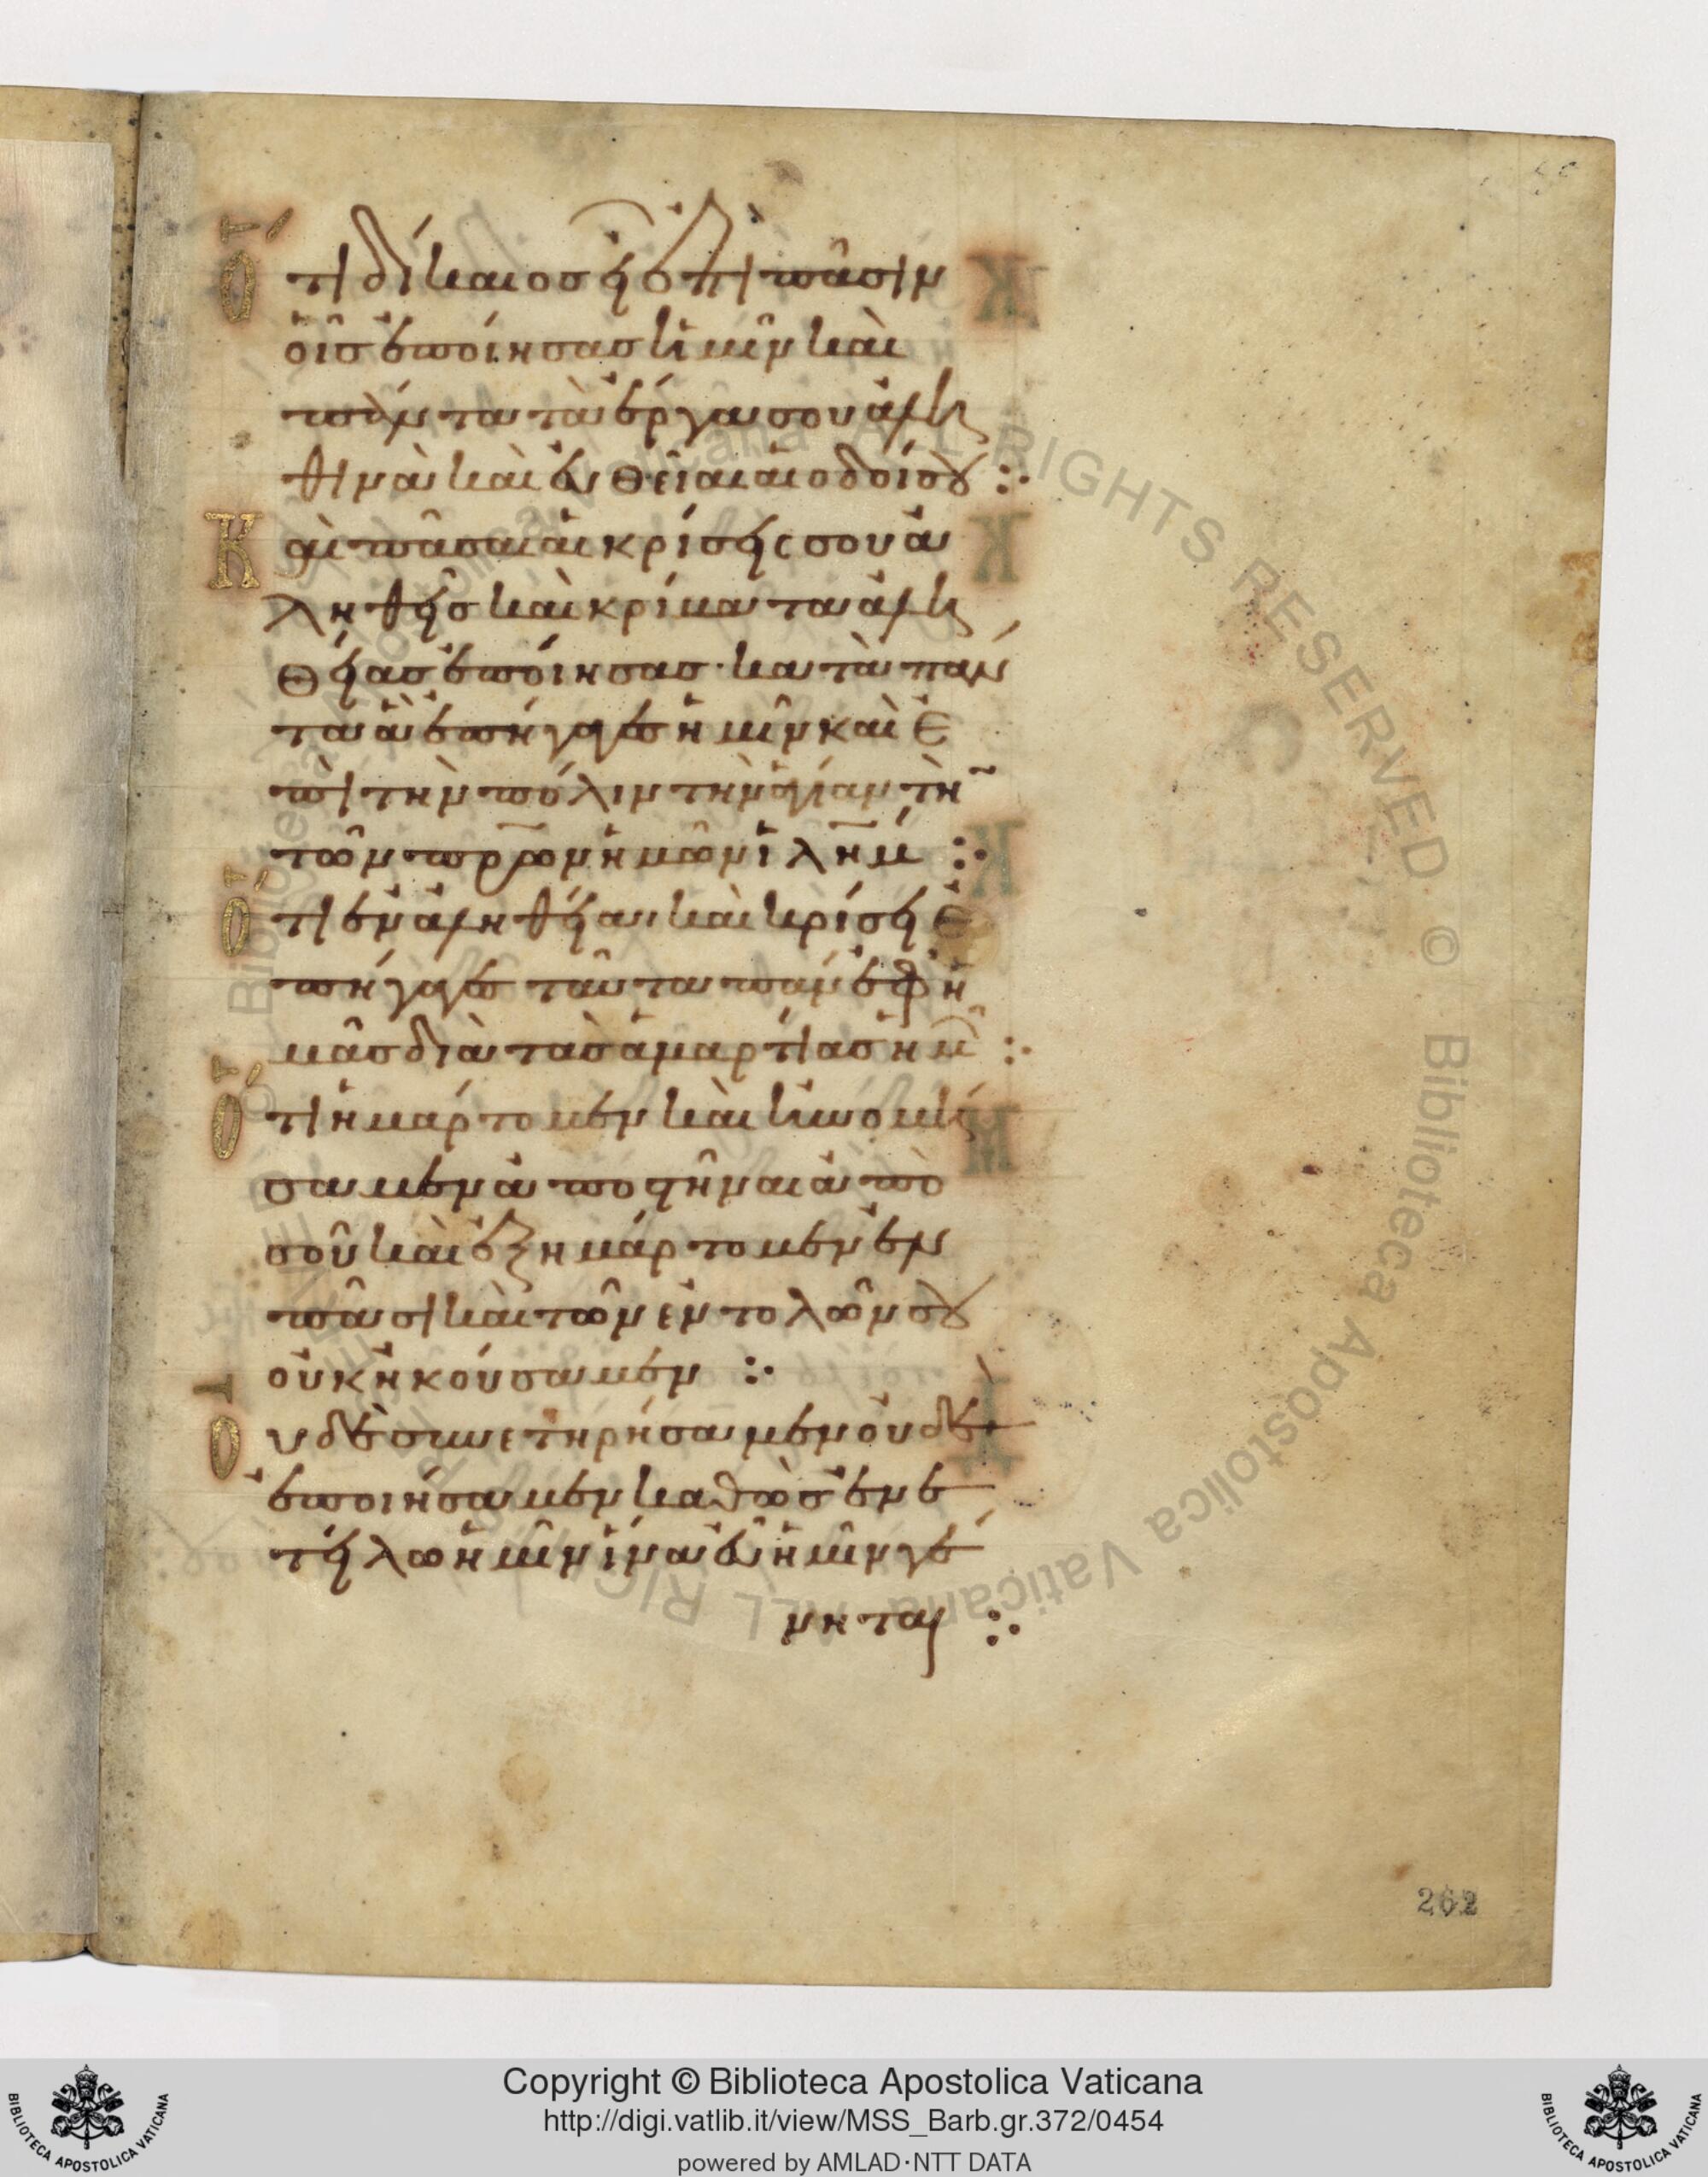 Ὅτι δίκαιος εἶ ἐπὶ πᾶσιν
οἷς ἐποίησας ἡμῖν καὶ
πάντα τὰ ἔργα σου ἀλη
θινὰ καὶ εὐθεῖαι αἱ ὁδοί σου :·
Καὶ πᾶσαι αἱ κρίσεις σου ἀ
ληθεῖς καὶ κρίματα ἀλη
θείας ἐποίησας· κατὰ πάν
τα ἃ ἐπήγαγες ἡμῖν καὶ ἐ
πὶ τὴν πόλιν τὴν ἁγίαν τὴν
τῶν πρων ἡμῶν ἰλήμ :·
Ὅτι ἐν ἀληθείᾳ καὶ κρίσει ἐ
πήγαγες ταῦτα πάντα ἐφ' ἡ
μᾶς διὰ τὰς ἁμαρτίας ἡμῶν :·
Ὅτι ἡμάρτομεν καὶ ἠνομή
σαμεν ἀποστῆναι ἀπὸ
σοῦ καὶ ἐξημάρτομεν ἐν
πᾶσι καὶ τῶν ἐντολῶν σου
οὐκ ἠκούσαμεν :·
Οὐδὲ συνετηρήσαμεν οὐδὲ
ἐποιήσαμεν καθὼς ἐνε
τείλω ἡμῖν ἵνα εὖ ἡμῖν γέ
νηται :·
262
Copyright © Biblioteca Apostolica Vaticana
http://digi.vatlib.it/view/MSS_Barb.gr.372/0454
powered by AMLAD·NTT DATA
BIBLIOTECA APOSTOLICA VATICANA
BIBLIOTECA APOSTOLICA VATICANA